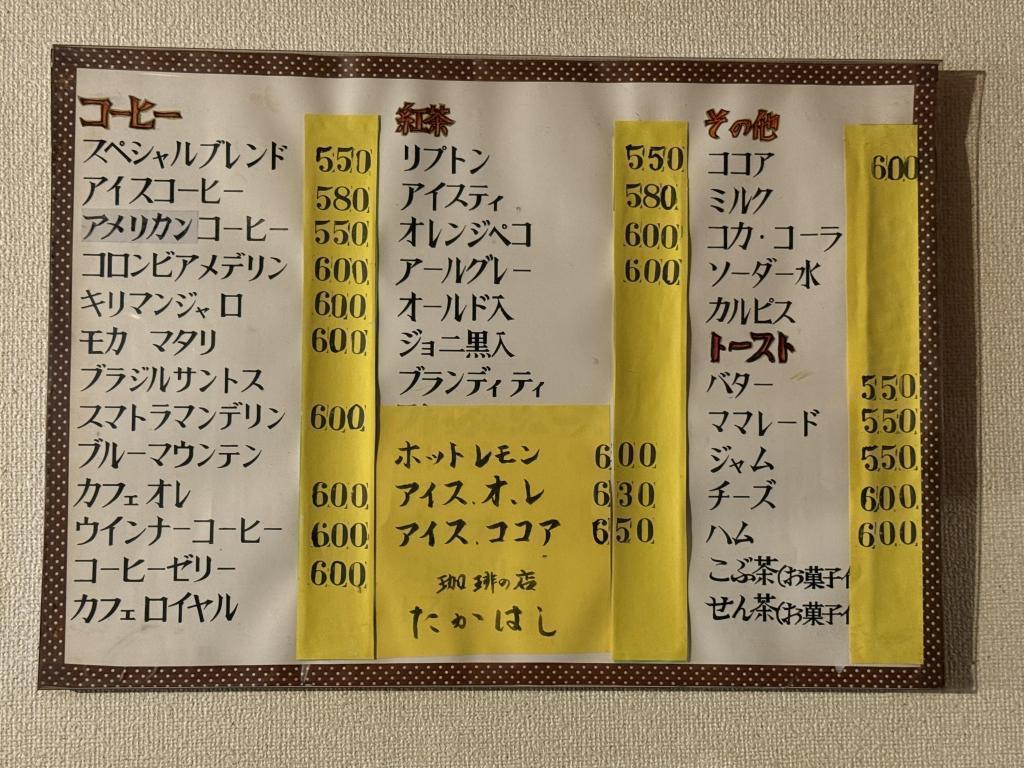 コーヒー
スペシャルブレンド 550
アイスコーヒー 580
アメリカンコーヒー 550
コロンビアメデリン 600
キリマンジャロ 600
モカ マタリ 600
ブラジルサントス
スマトラマンデリン 600
ブルーマウンテン
カフェオレ 600
ウインナーコーヒー 600
コーヒーゼリー 600
カフェロイヤル
紅茶
リプトン 550
アイスティ 580
オレンジペコ 600
アールグレー 600
オールド入
ジョニ黒入
ブランディティ
ホットレモン 600
アイス.オ.レ 630
アイス.ココア 650
珈琲の店
たかはし
その他
ココア 600
ミルク
コカ・コーラ
ソーダー水
カルピス
トースト
バター 550
ママレード 550
ジャム 550
チーズ 600
ハム 600
こぶ茶(お菓子
せん茶(お菓子